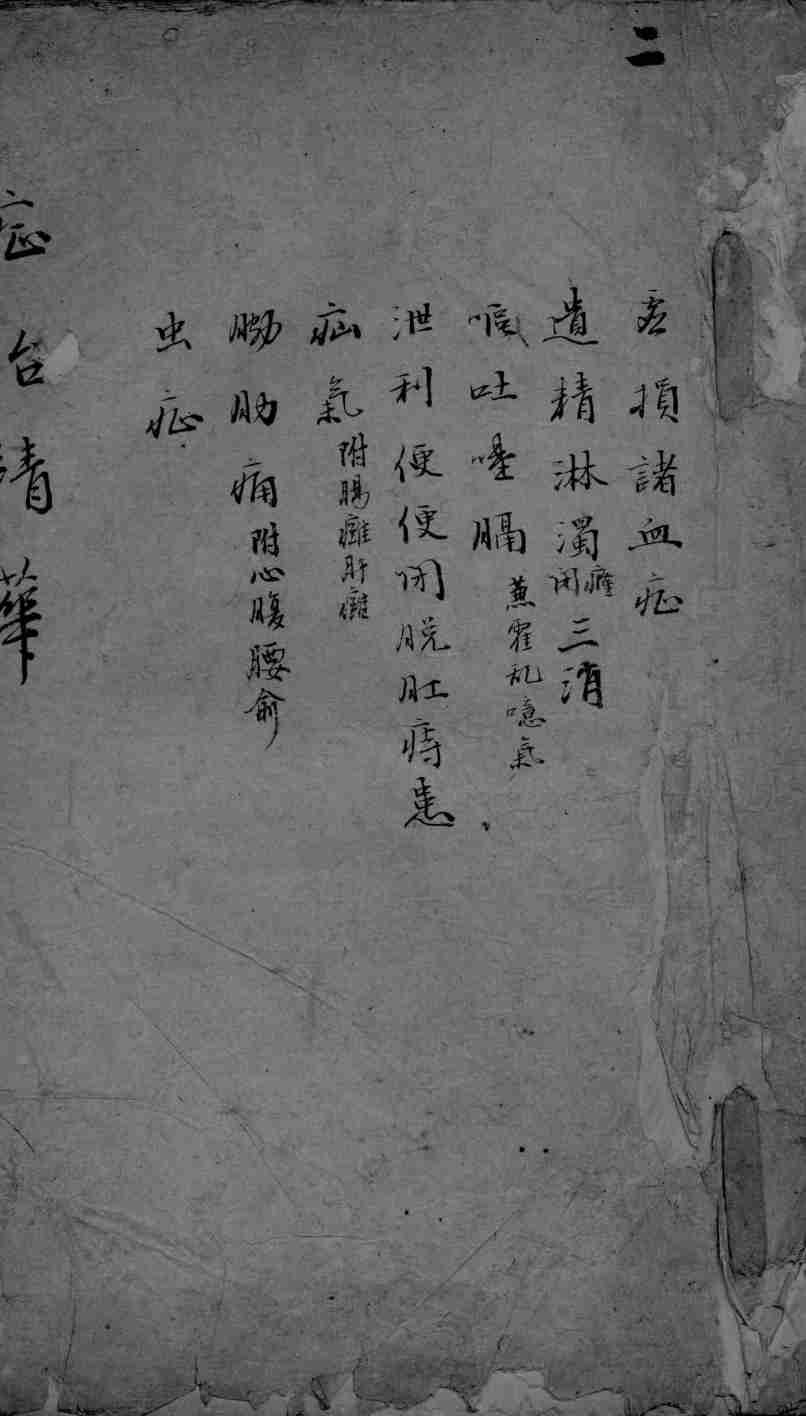 二
虛損諸血症
遺精淋濁癃閉三消
吐噎膈兼霍乱噫氣
泄利便便閉脱肛痔患
疝氣附腸癰肝癰
肋痛附心腹腰俞
虫症
症治精華